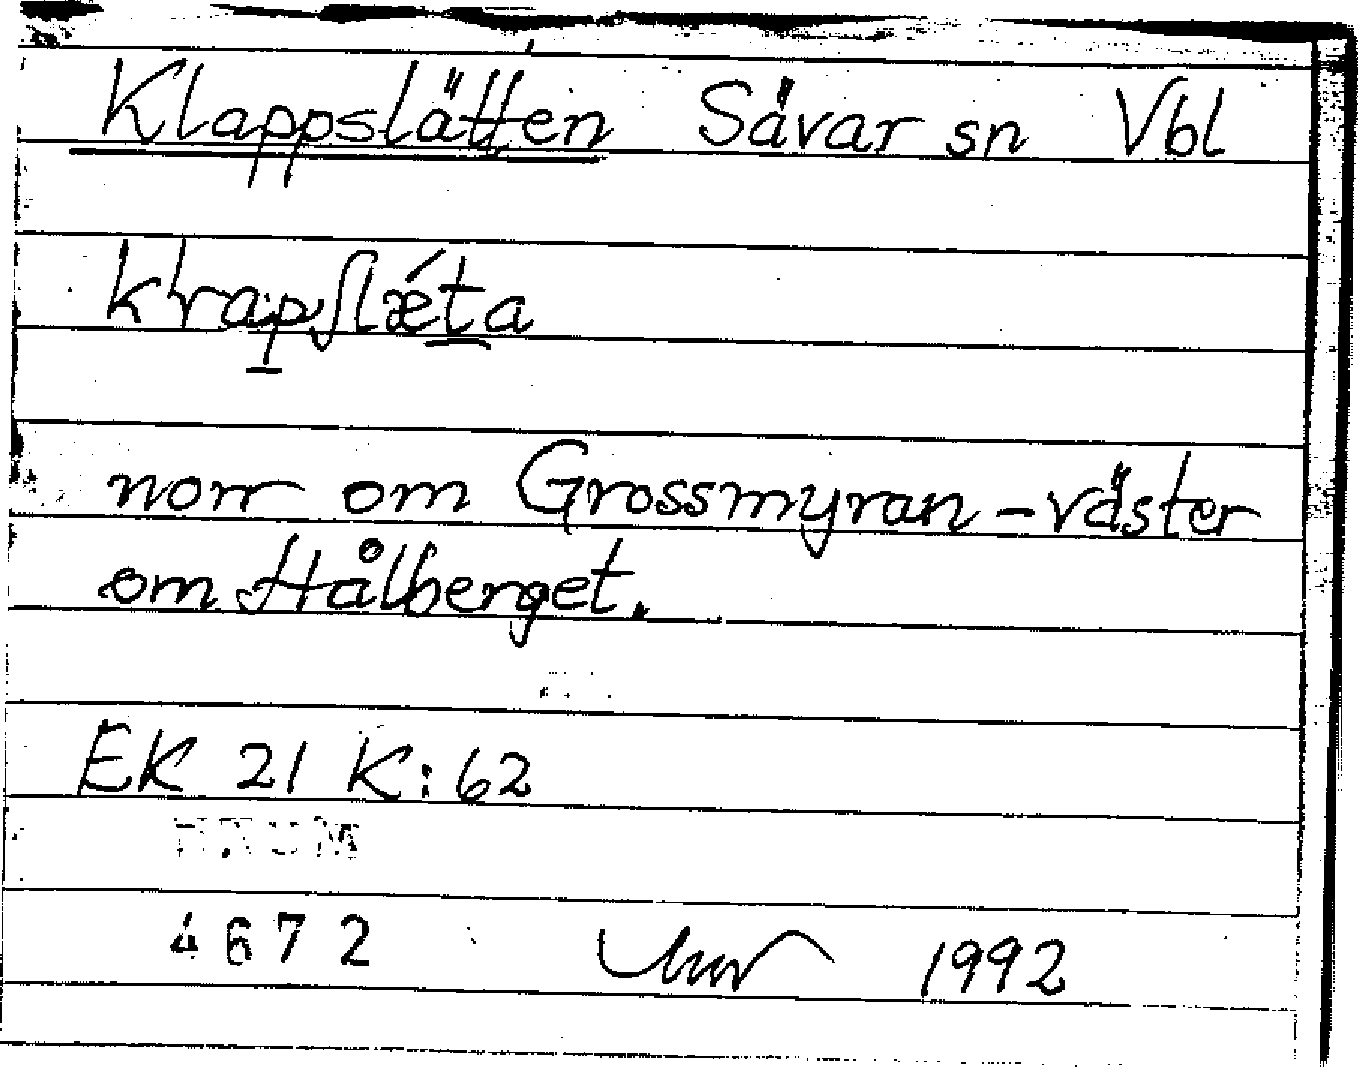 Klappslätten Sävar sn Vbl
norr om Grossmyran - väster
om Hålberget.
EK 21 K:62
4672 1992